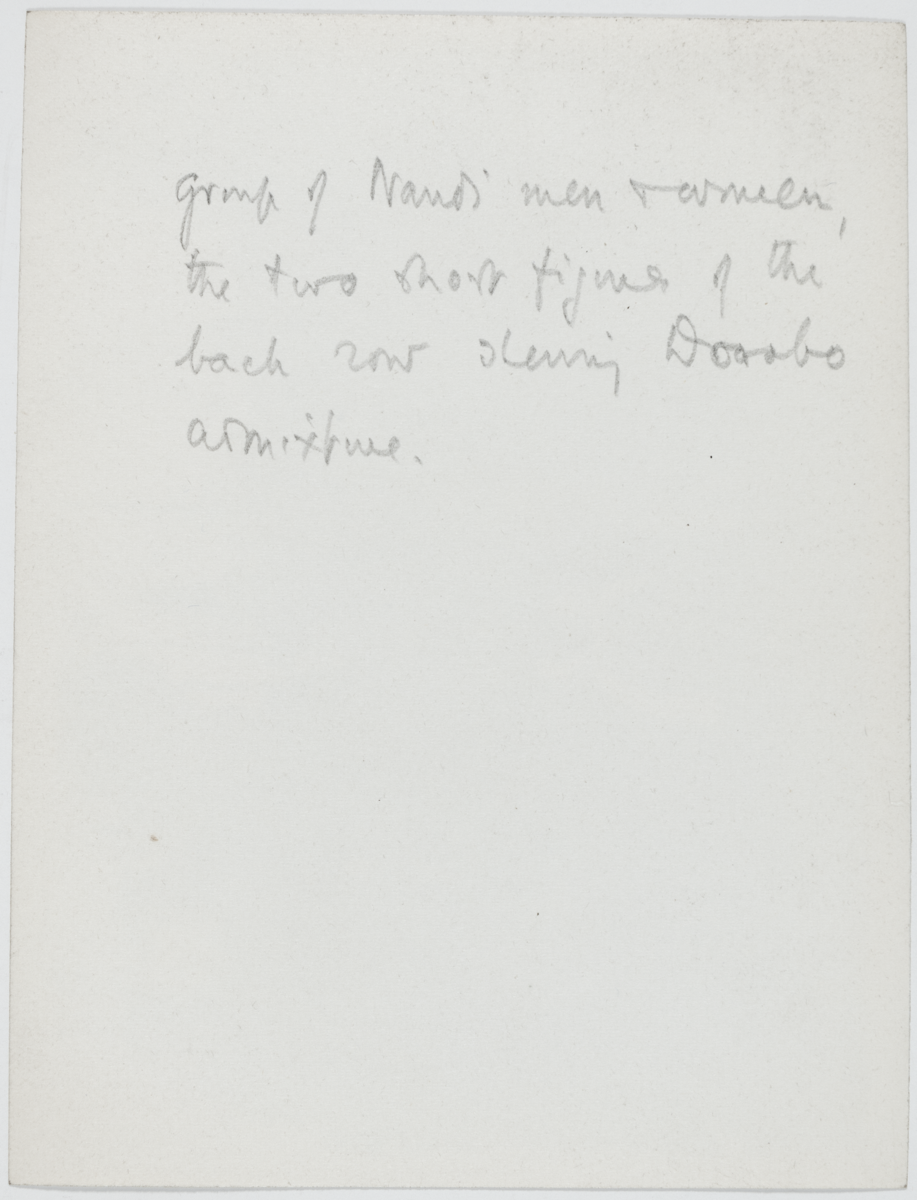 Group of Nandi men & women,
the two short figures of the
back row shewing Dorobo
admixture.